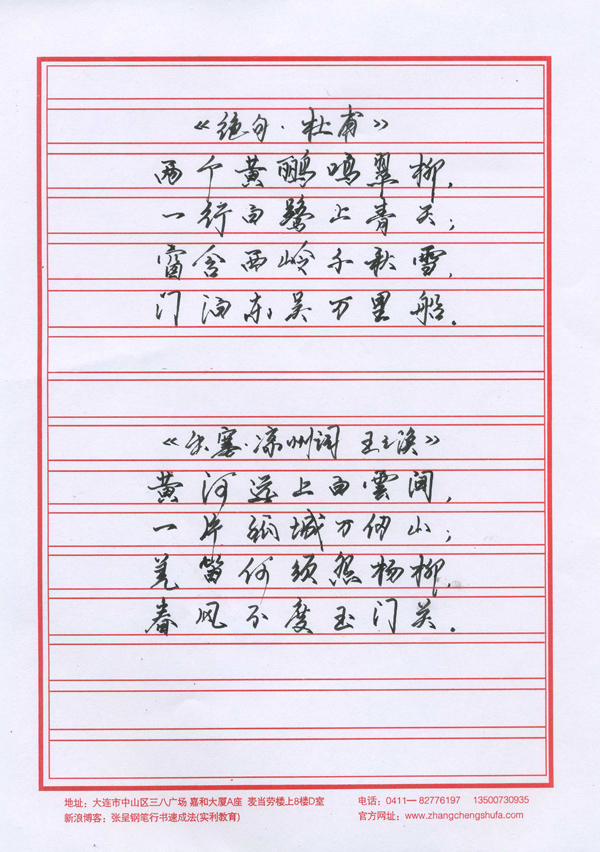 《绝句·杜甫》
两个黄鹂鸣翠柳，
一行白鹭上青天；
窗含西岭千秋雪，
门泊东吴万里船．
《出塞·凉州词 王之涣》
黄河远上白雲间，
一片孤城万仞山；
羌笛何须怨杨柳，
春风不度玉门关．
地址：大连市中山区三八广场 嘉和大厦A座 麦当劳楼上8楼D室
电话：0411— 82776197 13500730935
新浪博客：张呈钢笔行书速成法(实利教育)
官方网址：www.zhangchengshufa.com